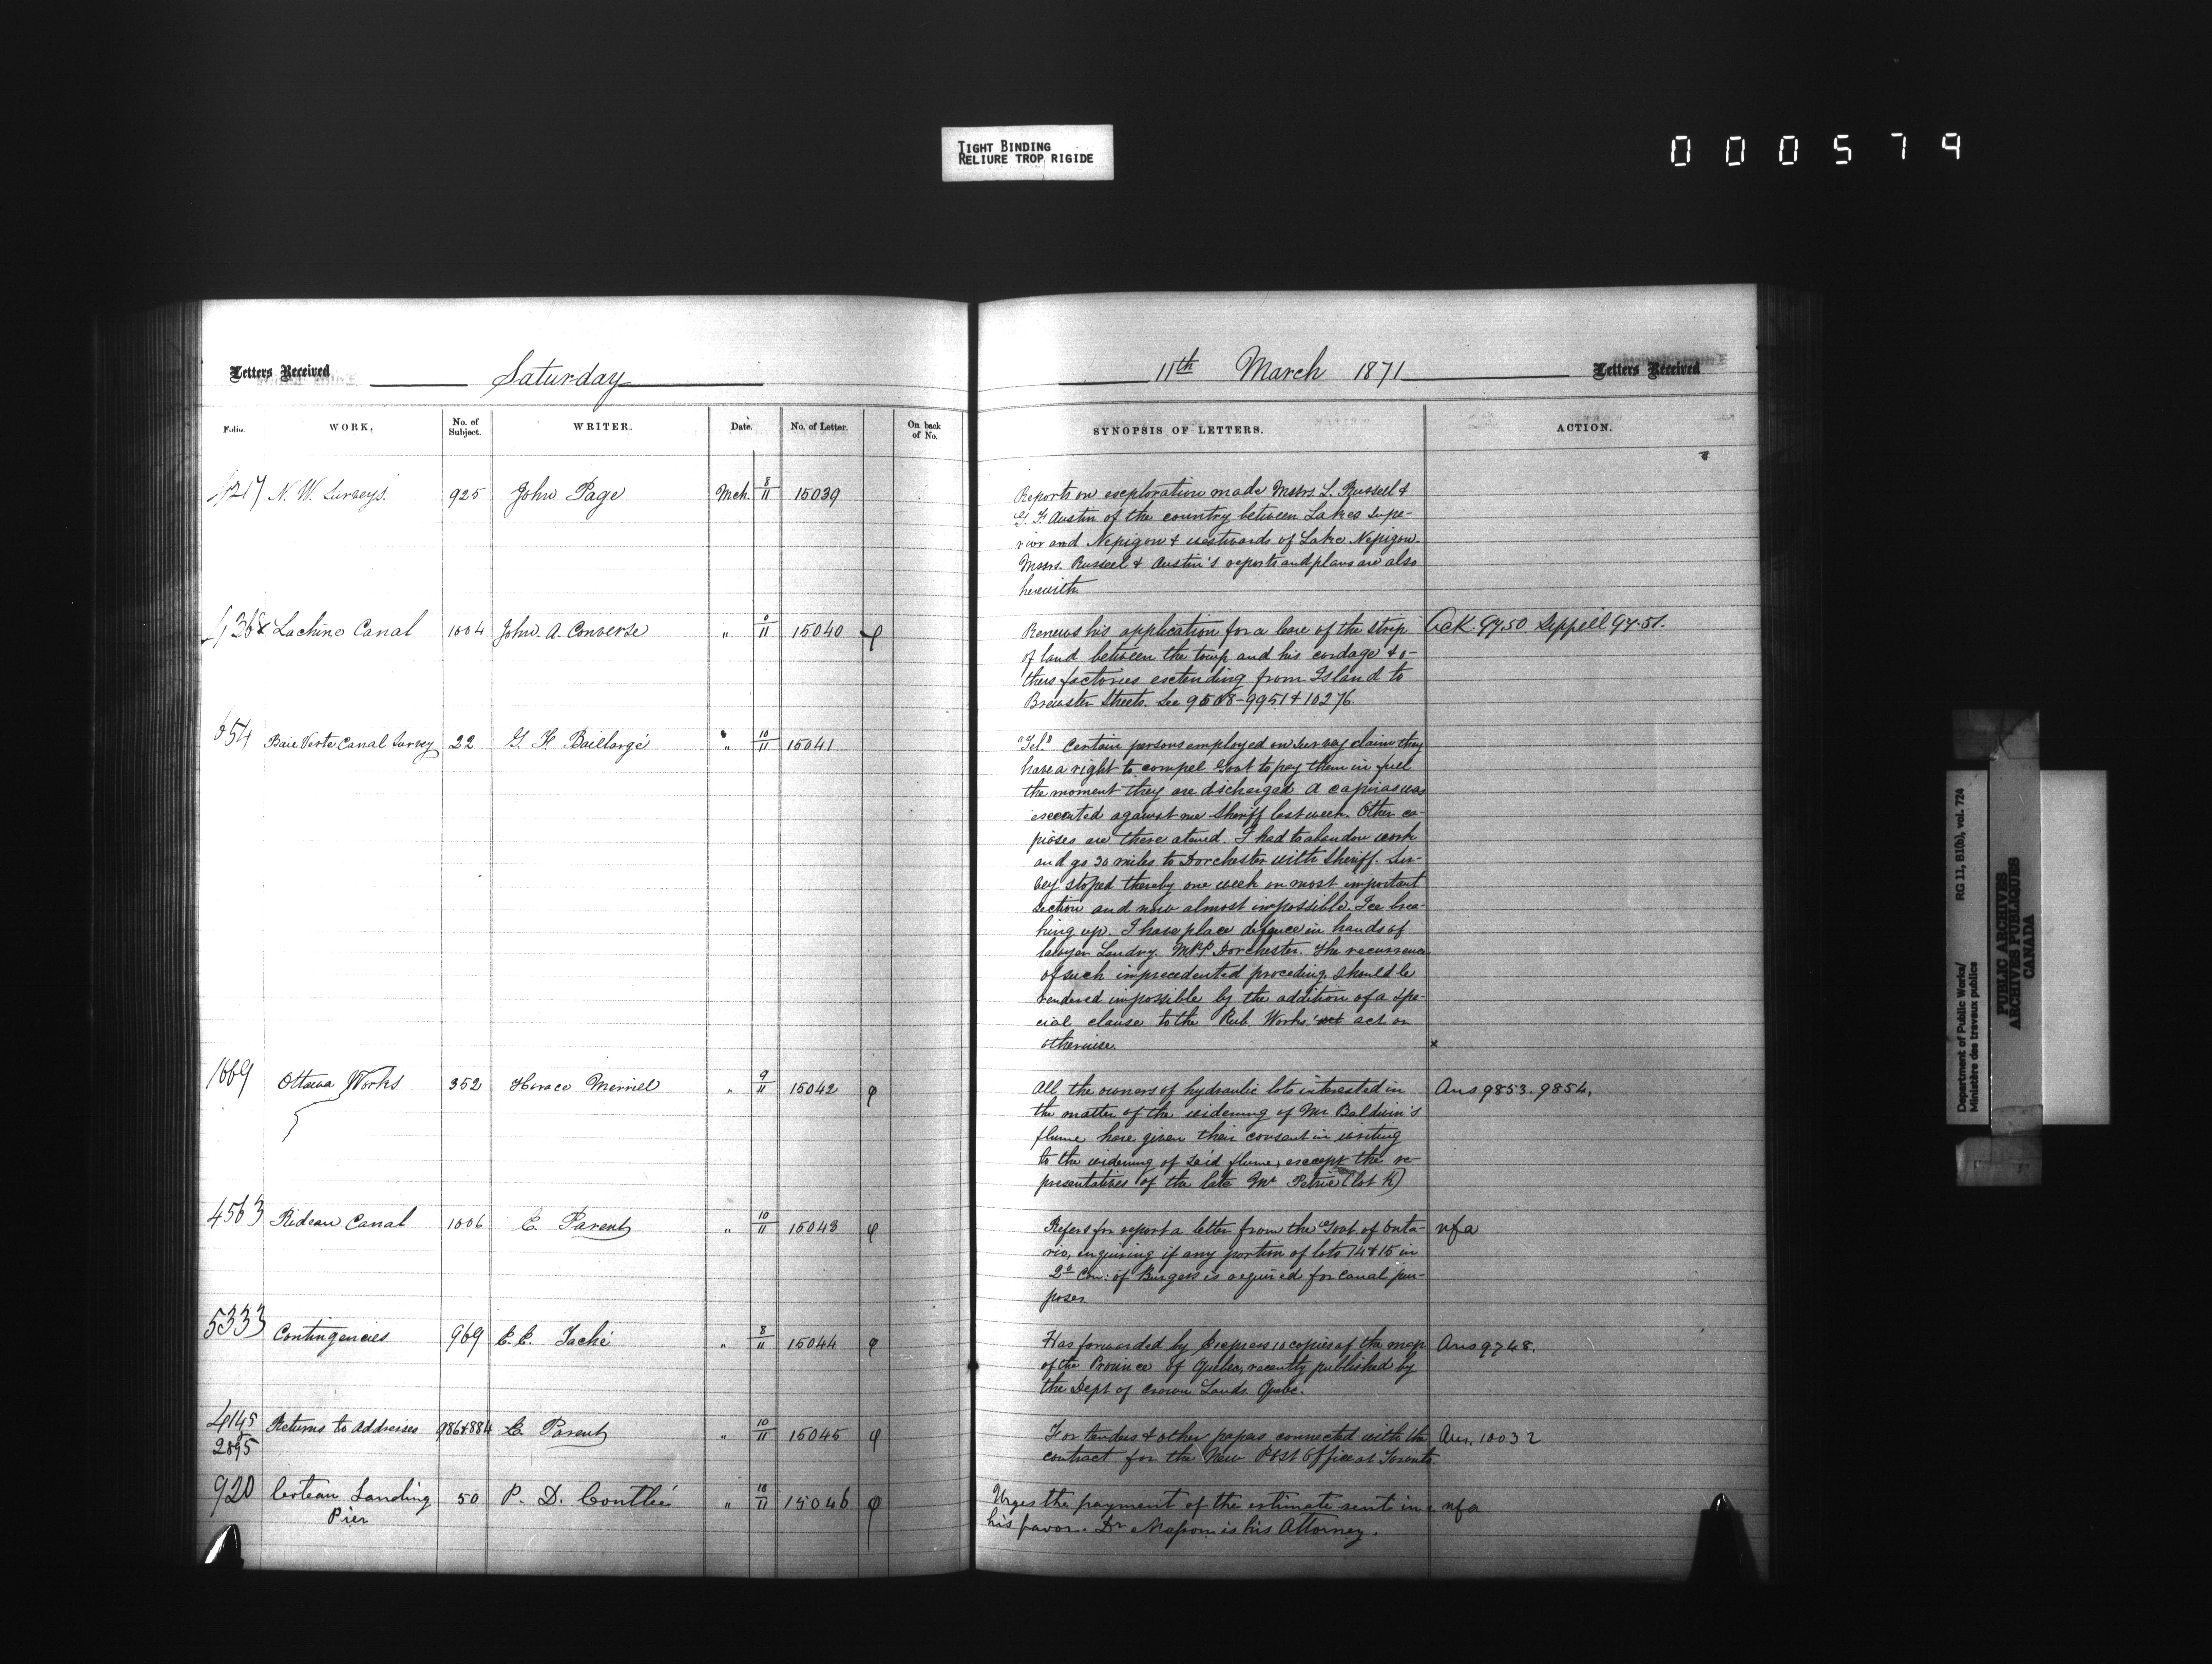 TIGHT BINDING
RELIURE TROP RIGIDE
000579
Letters Received Saturday
11th March 1871 Letters Received
Folio. WORK. No. of Subject. WRITER. Date. No. of Letter. On back of No.
SYNOPSIS OF LETTERS. ACTION.
N. W. Surveys. 925 John Page Mch. 8/11 15039
Reports on exploration made Messrs. L. Russell &
G. F. Austin of the country between Lakes Supe-
rior and Nepigon & westwards of Lake Nepigon.
Messrs. Russell & Austin's reports and plans are also
herewith.
Lachine Canal 1004 John A. Converse " 15040 φ
Renews his application for a lease of the strip Ack. 9750
of land between the towp and his cordage & o-
thers factories extending from Island to
Brewster Streets. See 9508-9951 & 10276.
654 Baie Verte Canal Survey 22 G. F. Baillargé " 10/11 15041
"Tel." Certain persons employed on survey claim they
have a right to compel Govt to pay them in full
the moment they are discharged a capias was
executed against me Sheriff last week. Other ca-
piases are there atened. I had to abandon work
and go 30 miles to Dorchester with Sheriff. Sur-
vey stoped thereby one week on most important
section and now almost impossible. Ice brea-
king up. I have place defence in hands of
lawyer Landry. M.P.P. Dorchester. The recurrence
of such imprecedented proceding should be
rendered impossible by the addition of a spe-
cial clause to the Pub. Works act act or
otherwise. x
1669 Ottawa Works 352 Horace Merrill " 9/11 15042 φ
All the owners of hydraulic lots interested in Ans 9853. 9854.
the matter of the widening of Mr Baldwin's
flume have given their consent in writing
to the widening of said flume, except the re-
presentatives of the late Mr Petrie (lot K)
4563 Rideau Canal 1006 E. Parent " 10/11 15043 φ
Refers for report a letter from the Govt of Onta- nfa
rio, enquiring if any portion of lots 14 & 15 in
2d Con: of Burgess is required for canal pur-
poses.
5333 Contingencies 969 E. E. Taché " 8/11 15044 φ
Has forwarded by Express 10 copies of the map Ans 9748.
of the Province of Quebec, recently published by
the Dept of Crown Lands. Quebc.
4145 Returns to Addresses 986 & 884 E. Parent " 10/11 15045 φ
2895
For tenders & other papers connected with the Ans. 10032
contract for the New Post Office at Toronto.
920 Coteau Landing 50 P. D. Coutlée " 10/11 15046 φ
Pier
Urges the payment of the estimate sent in nfa
his favor. Dr is his Attorney.
Department of Public Works/ RG 11, B1(b), vol. 724
Ministère des travaux publics
PUBLIC ARCHIVES
ARCHIVES PUBLIQUES
CANADA